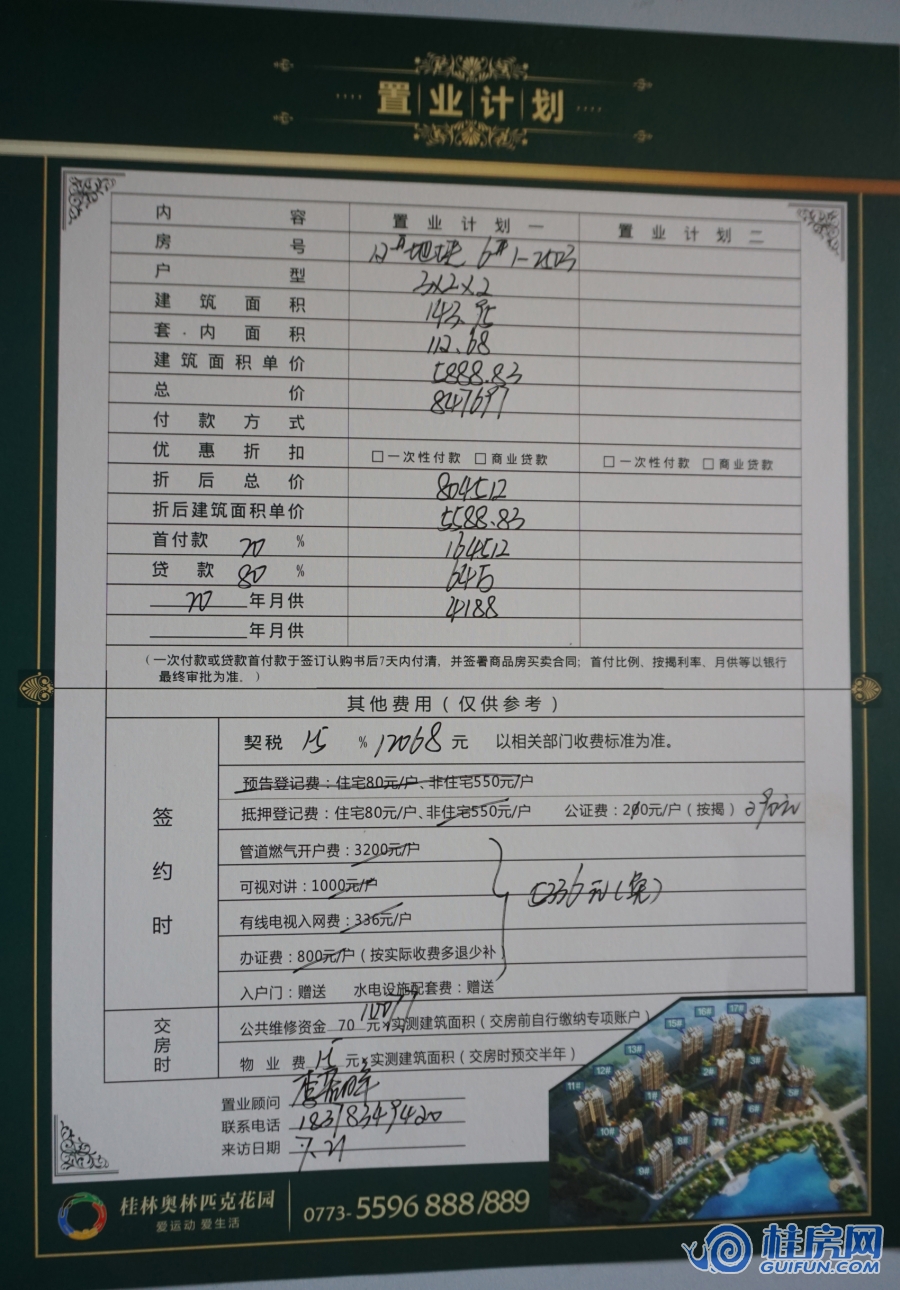 置业计划
内容 置业计划一 置业计划二
房号 12#地块 6# 1-2503
户型 3x2x2
建筑面积 143.95
套内面积 112.68
建筑面积单价 5888.83
总价 847697
付款方式
优惠折扣 □一次性付款 □商业贷款 □一次性付款 □商业贷款
折后总价 804512
折后建筑面积单价 5588.83
首付款 20 % 164512
贷款 80 % 64万
20 年月供 4188
年月供
(一次付款或贷款首付款于签订认购书后7天内付清，并签署商品房买卖合同；首付比例、按揭利率、月供等以银行
最终审批为准。)
其他费用(仅供参考)
签约时
契税 1.5 % 12068 元 以相关部门收费标准为准。
预告登记费：住宅80元/户、非住宅550元/户
抵押登记费：住宅80元/户、非住宅550元/户 公证费：200元/户(按揭)
管道燃气开户费：3200元/户
可视对讲：1000元/户
5336元(免)
有线电视入网费：336元/户
办证费：800元/户(按实际收费多退少补)
入户门：赠送 水电设施配套费：赠送
交房时
公共维修资金 70 元×实测建筑面积(交房前自行缴纳专项账户)
10077
物业费 1.5 元×实测建筑面积(交房时预交半年)
置业顾问
联系电话 18378349420
来访日期 7.21
17#
16#
15#
13#
12#
11#
10#
9#
8#
7#
6#
5#
3#
2#
1#
桂林奥林匹克花园
爱运动 爱生活
0773-5596 888/889
桂房网
GUIFUN.COM